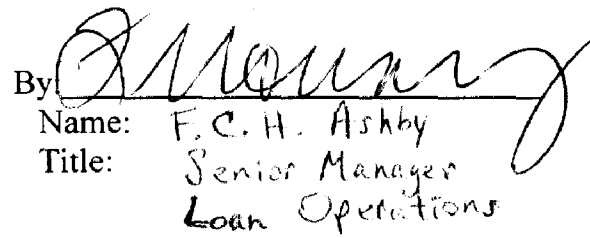 By
Name: F. C. H. Ashby
Title: Senior Manager
Loan Operations